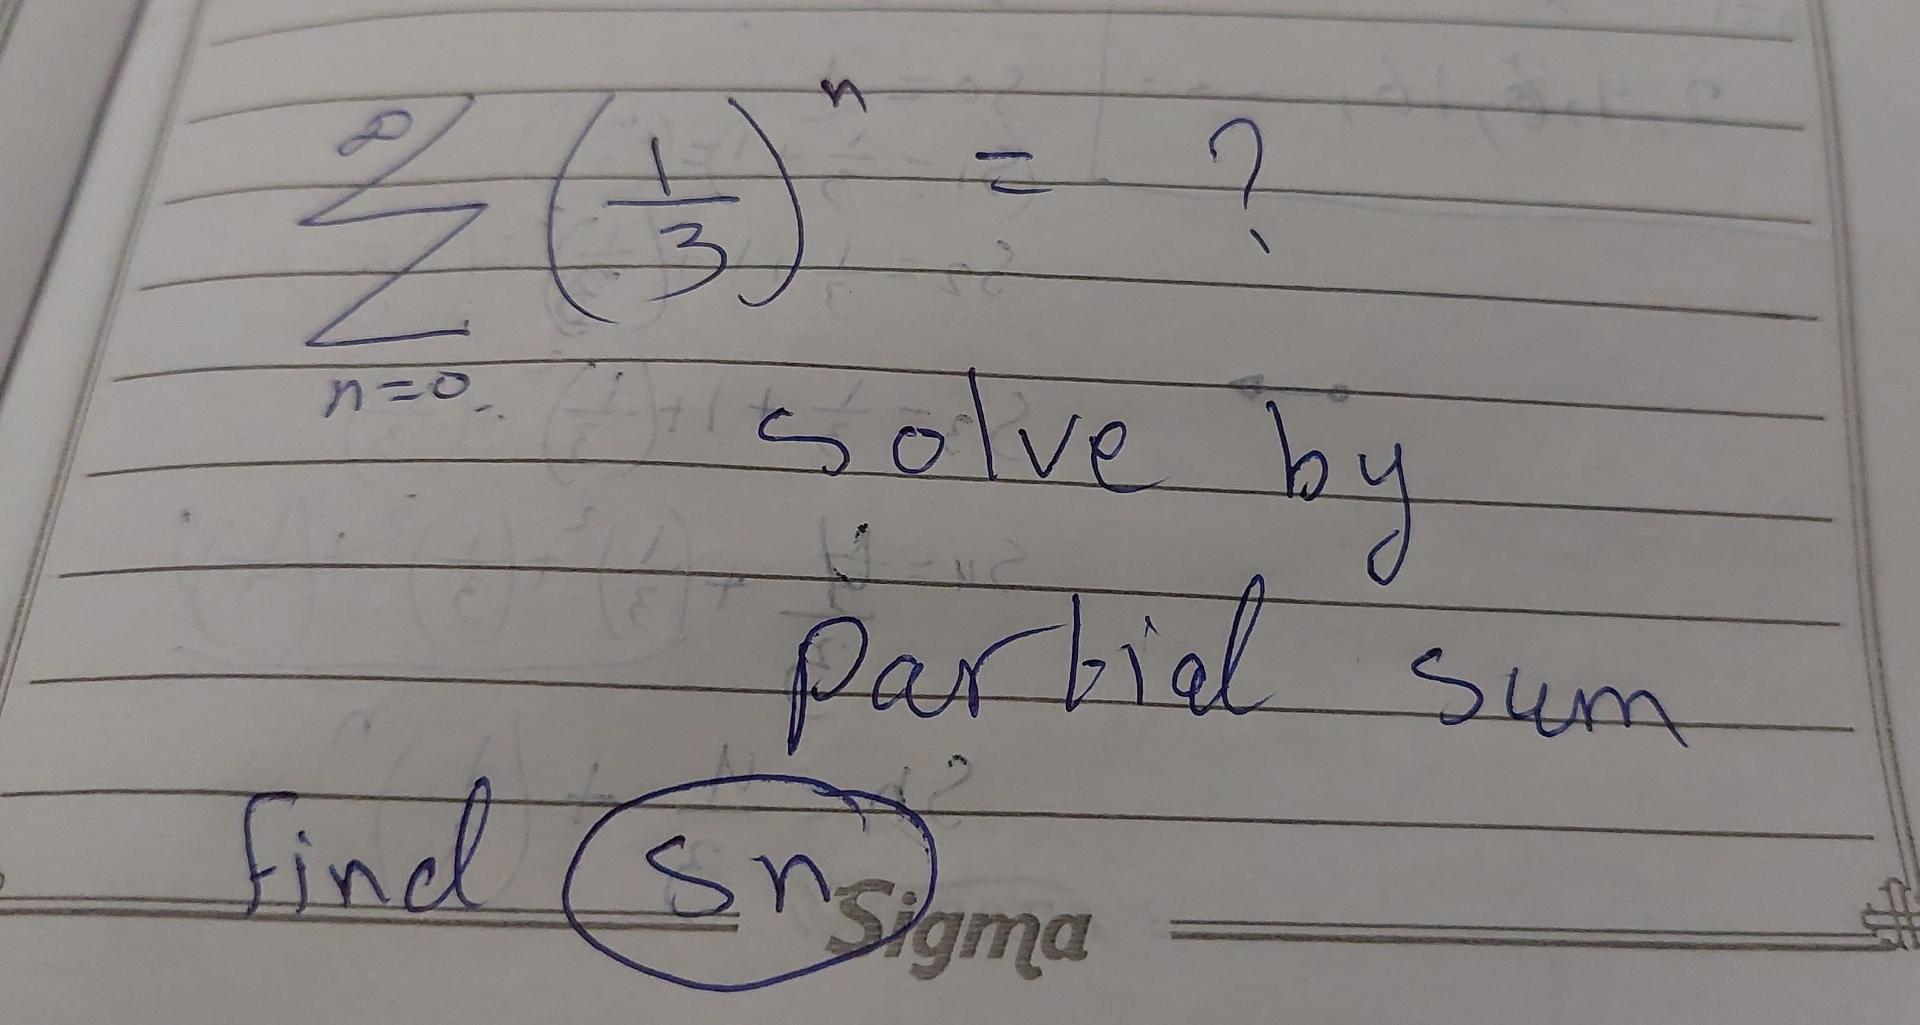 ∞
∑ (1/3)ⁿ = ?
n=0
solve by
partial sum
find Sn
Sigma